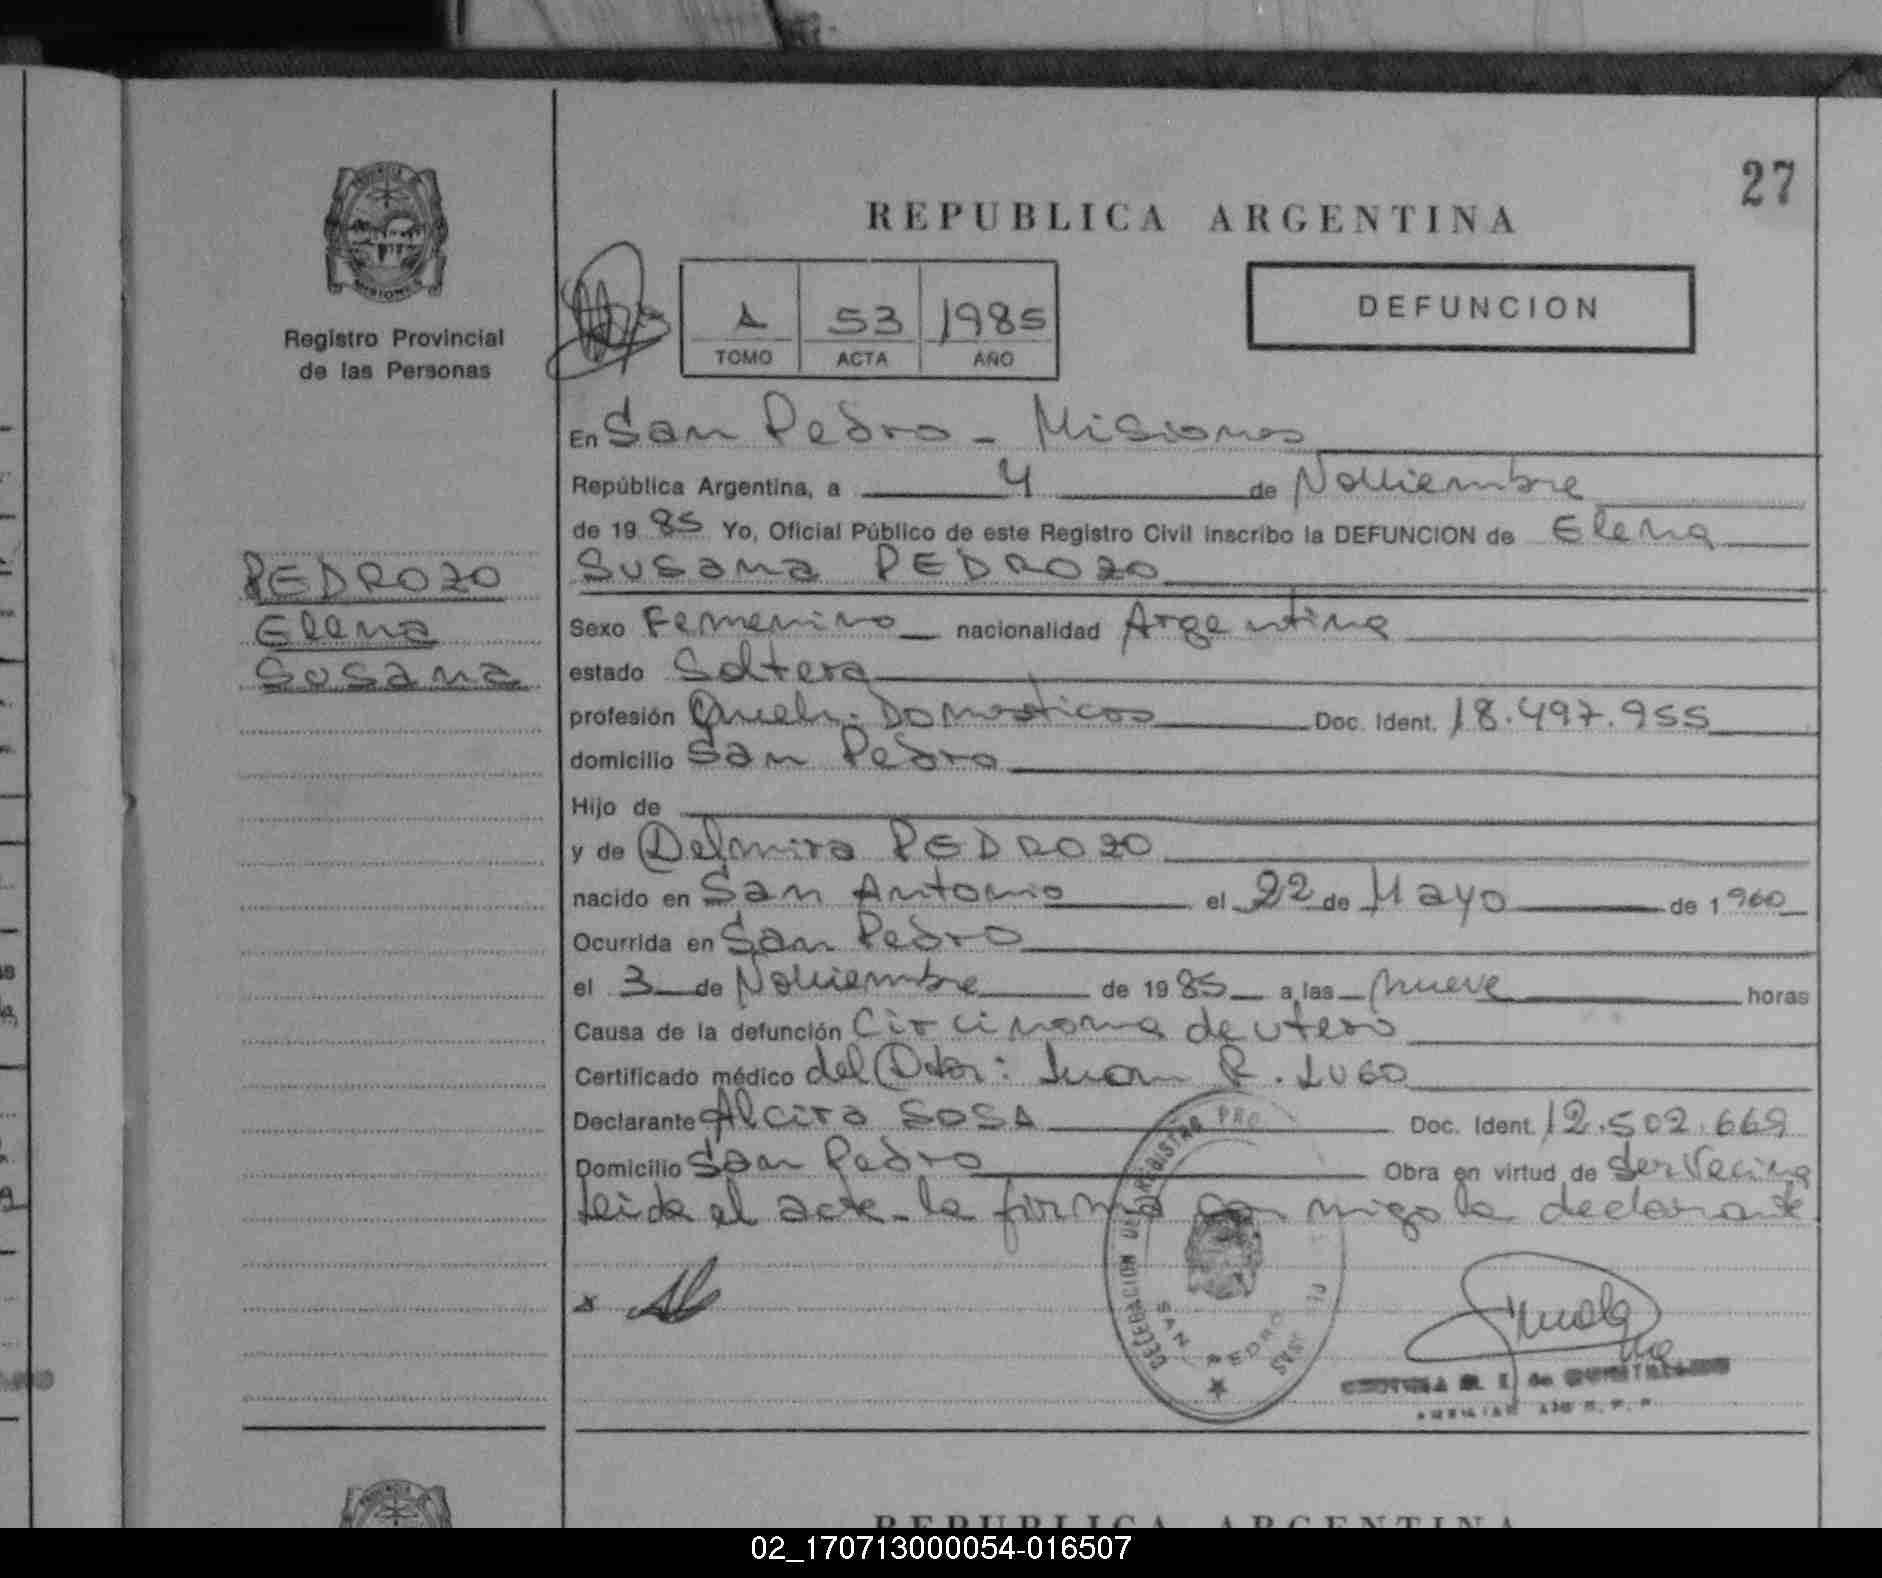 27
REPUBLICA ARGENTINA
PROVINCIA DE
MISIONES
Registro Provincial
de las Personas
A 53 1985
TOMO ACTA AÑO
DEFUNCION
En San Pedro - Misiones
República Argentina, a 4 de Noviembre
de 1985 Yo, Oficial Público de este Registro Civil inscribo la DEFUNCION de Elena
Susana PEDROZO
PEDROZO
Elena
Susana
Sexo Femenino nacionalidad Argentina
estado Soltera
profesión Queh. Domesticos Doc. Ident. 18.497.955
domicilio San Pedro
Hijo de
y de Delmira PEDROZO
nacido en San Antonio el 22 de Mayo de 1960
Ocurrida en San Pedro
el 3 de Noviembre de 1985 a las nueve horas
Causa de la defunción Circinoma de utero
Certificado médico del Dtor: Juan R. LUGO
Declarante Alcira SOSA Doc. Ident. 12.502.669
Domicilio San Pedro Obra en virtud de Ser Vecina
Leida el acta la firma con migo la declarante
DELEGACION DE REGISTRO PRO DE LAS PE
SAN PEDRO
REPUBLICA ARGENTINA
02_170713000054-016507